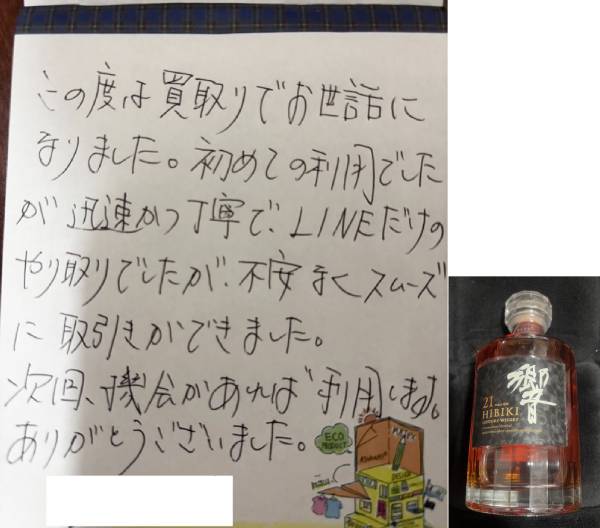 この度は買取りでお世話に
なりました。初めての利用でした
が迅速かつ丁寧で、LINEだけの
やり取りでしたが、不安なくスムーズ
に取引きができました。
次回、機会があれば利用します。
ありがとうございました。
ECO
響
21
HIBIKI
SUNTORY WHISKY